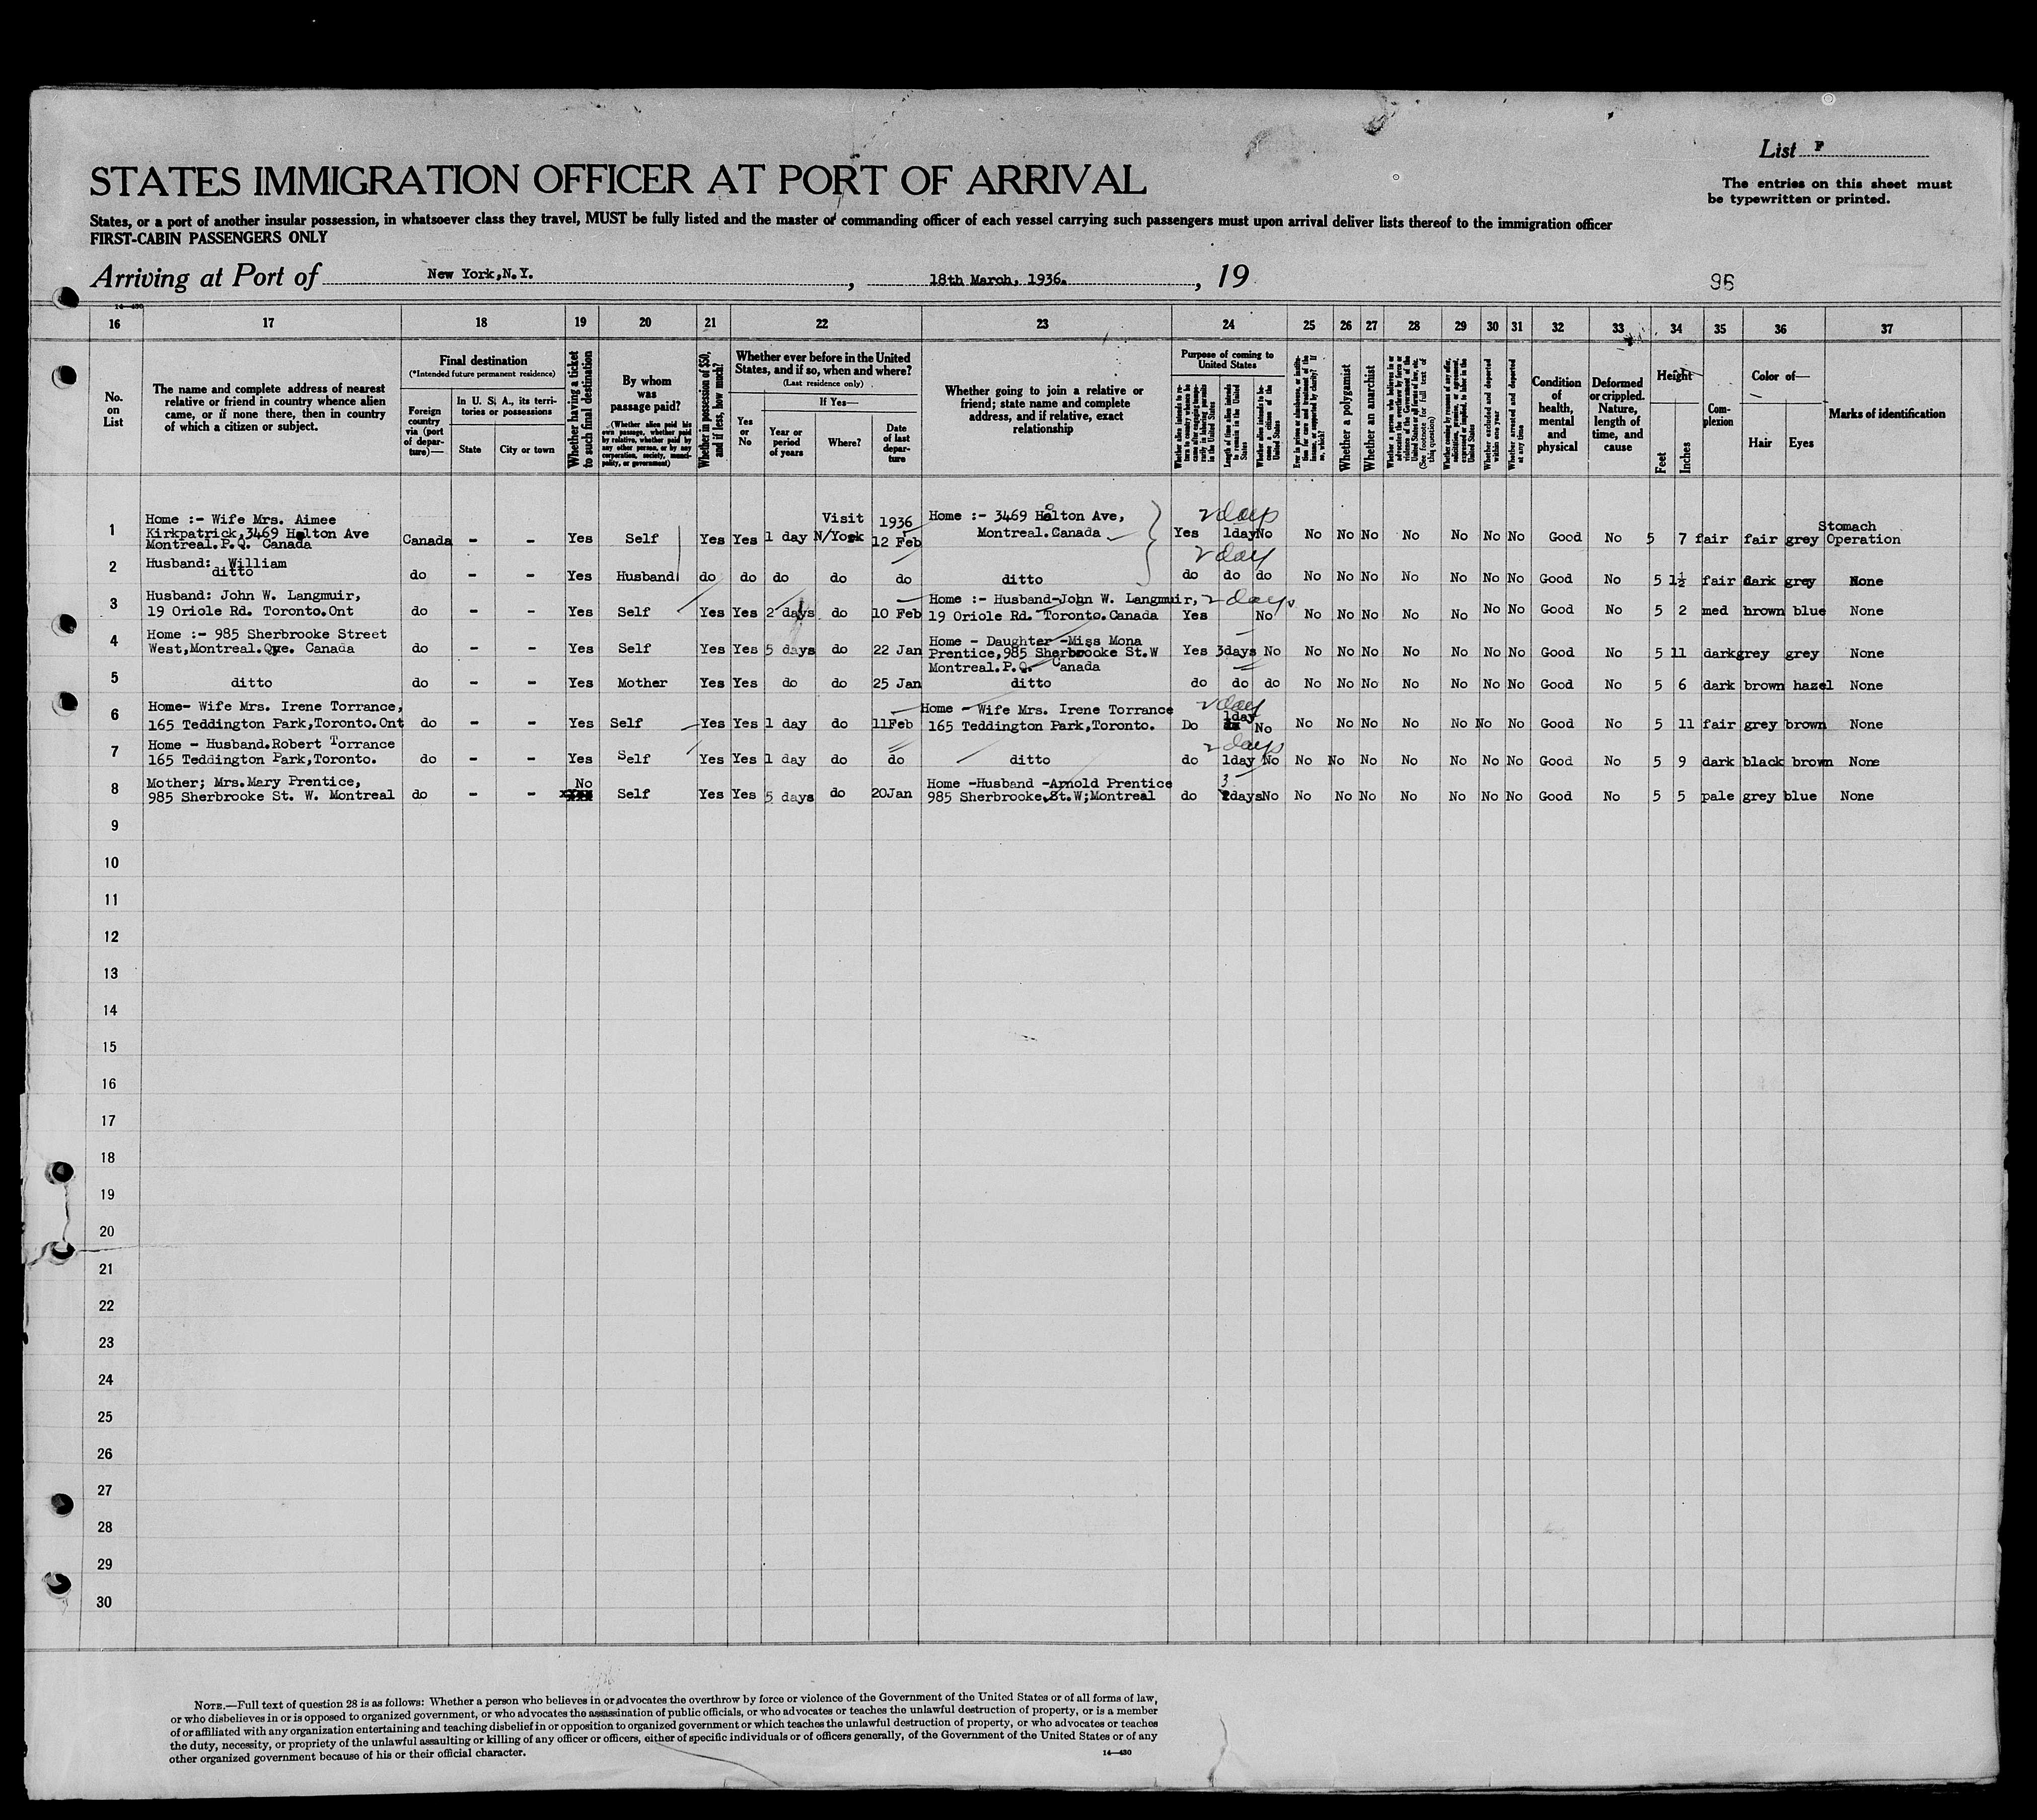 List F
STATES IMMIGRATION OFFICER AT PORT OF ARRIVAL
The entries on this sheet must
be typewritten or printed.
States, or a port of another insular possession, in whatsoever class they travel, MUST be fully listed and the master or commanding officer of each vessel carrying such passengers must upon arrival deliver lists thereof to the immigration officer
FIRST-CABIN PASSENGERS ONLY
Arriving at Port of New York,N.Y. , 18th March, 1936. , 19
96
14—430
16 17 18 19 20 21 22 23 24 25 26 27 28 29 30 31 32 33 34 35 36 37
No. on List
The name and complete address of nearest relative or friend in country whence alien came, or if none there, then in country of which a citizen or subject.
Final destination
(*Intended future permanent residence)
Foreign country via (port of departure)—
In U. S. A., its territories or possessions
State
City or town
Whether having a ticket to such final destination
By whom was passage paid?
(Whether alien paid his own passage, whether paid by relative, whether paid by any other person, or by any corporation, society, municipality, or government)
Whether in possession of $50, and if less, how much?
Whether ever before in the United States, and if so, when and where?
(Last residence only)
Yes or No
If Yes—
Year or period of years
Where?
Date of last departure
Whether going to join a relative or friend; state name and complete address, and if relative, exact relationship
Purpose of coming to United States
Whether alien intends to return to country whence he came after engaging temporarily in laboring pursuits in the United States
Length of time alien intends to remain in the United States
Whether alien intends to become a citizen of the United States
Ever in prison or almshouse, or institution for care and treatment of the insane, or supported by charity? If so, which?
Whether a polygamist
Whether an anarchist
Whether a person who believes in or advocates the overthrow by force or violence of the Government of the United States or all forms of law, etc. (See footnote for full text of this question)
Whether coming by reason of any offer, solicitation, promise, or agreement, expressed or implied, to labor in the United States
Whether excluded and deported within one year
Whether arrested and deported at any time
Condition of health, mental and physical
Deformed or crippled. Nature, length of time, and cause
Height
Feet
Inches
Complexion
Color of—
Hair
Eyes
Marks of identification
1 Home :- Wife Mrs. Aimee Kirkpatrick,3469 Holton Ave Montreal.P.Q. Canada Canada - - Yes Self Yes Yes 1 day Visit N/York 1936 12 Feb Home :- 3469 Holton Ave, Montreal.Canada Yes 2 days 1day No No No No No No No No Good No 5 7 fair fair grey Stomach Operation
2 Husband: William ditto do - - Yes Husband do do do do do ditto do 2 day do do No No No No No No No Good No 5 1½ fair dark grey None
3 Husband: John W. Langmuir, 19 Oriole Rd. Toronto.Ont do - - Yes Self Yes Yes 2 days do 10 Feb Home :- Husband-John W. Langmuir, 19 Oriole Rd. Toronto.Canada Yes 2 days No No No No No No No No Good No 5 2 med brown blue None
4 Home :- 985 Sherbrooke Street West,Montreal.Que. Canada do - - Yes Self Yes Yes 5 days do 22 Jan Home - Daughter -Miss Mona Prentice,985 Sherbrooke St.W Montreal.P.Q. Canada Yes 3days No No No No No No No No Good No 5 11 dark grey grey None
5 ditto do - - Yes Mother Yes Yes do do 25 Jan ditto do do do No No No No No No No Good No 5 6 dark brown hazel None
6 Home- Wife Mrs. Irene Torrance, 165 Teddington Park,Toronto.Ont do - - Yes Self Yes Yes 1 day do 11Feb Home - Wife Mrs. Irene Torrance 165 Teddington Park,Toronto. Do 2 day 1day No No No No No No No No Good No 5 11 fair grey brown None
7 Home - Husband.Robert Torrance 165 Teddington Park,Toronto. do - - Yes Self Yes Yes 1 day do do ditto do 2 days 1day No No No No No No No No Good No 5 9 dark black brown None
8 Mother; Mrs.Mary Prentice, 985 Sherbrooke St. W. Montreal do - - No Self Yes Yes 5 days do 20Jan Home -Husband -Arnold Prentice 985 Sherbrooke.St.W;Montreal do 3 days No No No No No No No No Good No 5 5 pale grey blue None
9
10
11
12
13
14
15
16
17
18
19
20
21
22
23
24
25
26
27
28
29
30
NOTE.—Full text of question 28 is as follows: Whether a person who believes in or advocates the overthrow by force or violence of the Government of the United States or of all forms of law,
or who disbelieves in or is opposed to organized government, or who advocates the assassination of public officials, or who advocates or teaches the unlawful destruction of property, or is a member
of or affiliated with any organization entertaining and teaching disbelief in or opposition to organized government or which teaches the unlawful destruction of property, or who advocates or teaches
the duty, necessity, or propriety of the unlawful assaulting or killing of any officer or officers, either of specific individuals or of officers generally, of the Government of the United States or of any
other organized government because of his or their official character.
14—430